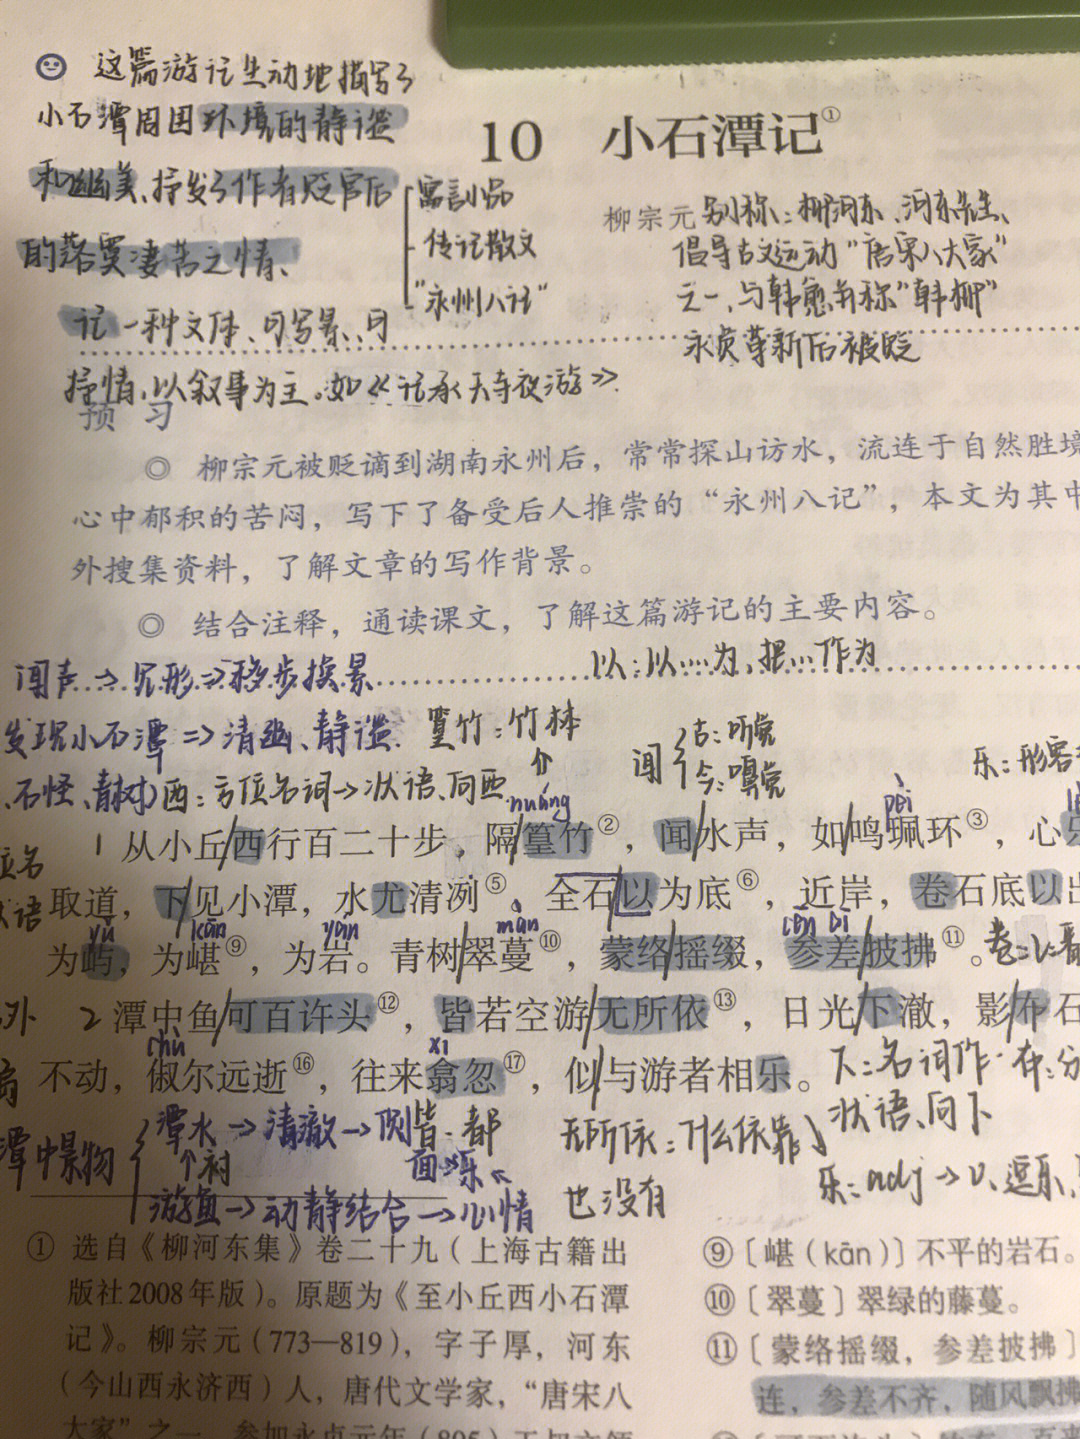 这篇游记生动地描写了
小石潭周围环境的静谧
和幽美、抒发了作者贬官后
的落寞凄苦之情、
记一种文体、可写景、可
抒情、以叙事为主。如《记承天寺夜游》.
10 小石潭记①
寓言小品
传记散文
"永州八记"
柳宗元 别称:柳河东、河东先生、
倡导古文运动"唐宋八大家"
之一、与韩愈并称"韩柳"
永贞革新后被贬
预习
◎ 柳宗元被贬谪到湖南永州后，常常探山访水，流连于自然胜境
心中郁积的苦闷，写下了备受后人推崇的“永州八记”，本文为其中
外搜集资料，了解文章的写作背景。
◎ 结合注释，通读课文，了解这篇游记的主要内容。
闻声→见形⇒移步换景
以:以……为、把…作为
发现小石潭⇒清幽、静谧.
篁竹:竹林
闻 古:听觉
今:嗅觉
乐:形容
、石怪、青树)
西:方位名词→状语、向西.
huáng
pèi
1 从小丘西行百二十步，隔篁竹②，闻水声，如鸣珮环③，心乐
取道，下见小潭，水尤清冽⑤。全石以为底⑥，近岸，卷石底以出
yǔ kān yán màn cēn
为屿，为嵁⑨，为岩。青树翠蔓⑩，蒙络摇缀，参差披拂⑪。
2 潭中鱼可百许头⑫，皆若空游无所依⑬，日光下澈，影布石
chù xī
不动，俶尔远逝⑯，往来翕忽⑰，似与游者相乐。
下:名词作
状语、向下
潭中景物
潭水→清澈→侧
面
↑衬
游鱼→动静结合→心情
乐
皆:都
无所依:什么依靠
也没有
乐:adj→v、逗乐、
① 选自《柳河东集》卷二十九（上海古籍出
版社2008年版）。原题为《至小丘西小石潭
记》。柳宗元（773—819），字子厚，河东
（今山西永济西）人，唐代文学家，“唐宋八
大家”之一。参加永贞元年（805）王叔文领
⑨〔嵁（kān）〕不平的岩石。
⑩〔翠蔓〕翠绿的藤蔓。
⑪〔蒙络摇缀，参差披拂〕
连，参差不齐，随风飘拂